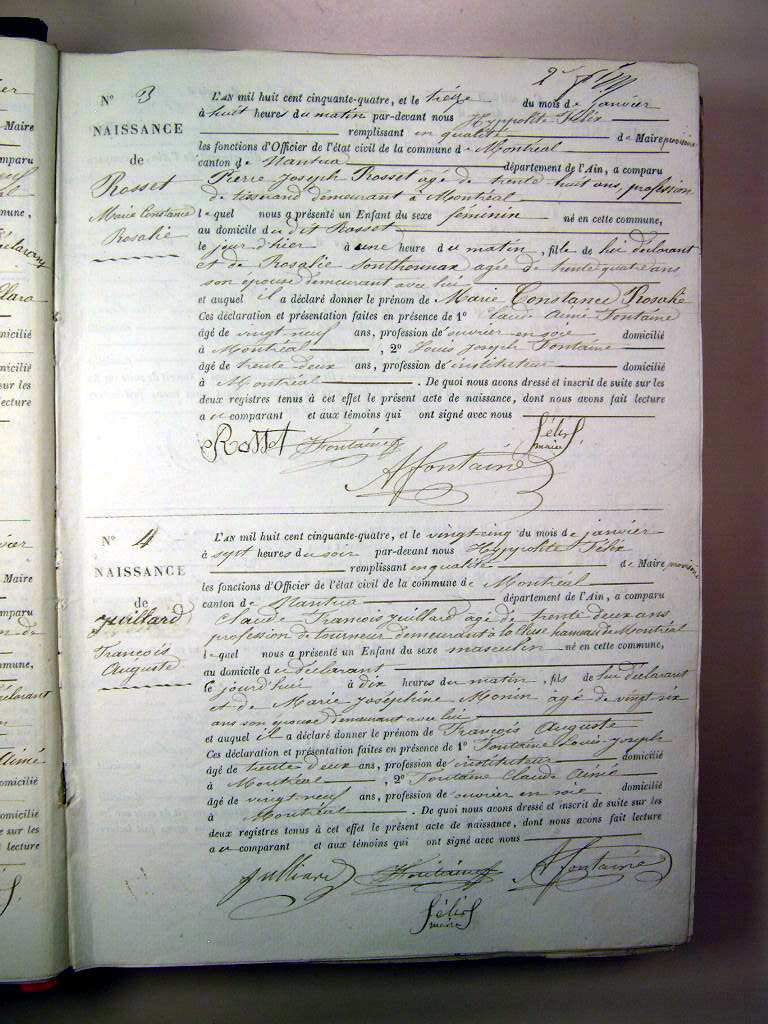 2e f
N° 3
NAISSANCE
de
Rosset
Marie Constance
Rosalie
L'AN mil huit cent cinquante-quatre, et le treize du mois de janvier
à huit heures du matin par-devant nous Hyppolite Félix
remplissant en qualité de Maire provisoire
les fonctions d'Officier de l'état civil de la commune de Montréal
canton de Nantua département de l'Ain, a comparu
Pierre Joseph Rosset agé de trente huit ans, profession
de tisserand demeurant à Montréal
lequel nous a présenté un Enfant du sexe féminin né en cette commune,
au domicile du dit Rosset
le jour d'hier à une heure du matin, fille de lui déclarant
et de Rosalie Sonthonnax agée de trente quatre ans
son épouse demeurant avec lui
et auquel il a déclaré donner le prénom de Marie Constance Rosalie
Ces déclaration et présentation faites en présence de 1° Claude Aimé Fontaine
âgé de vingt neuf ans, profession de ouvrier en soie domicilié
à Montréal , 2° Louis Joseph Fontaine
âgé de trente deux ans, profession de instituteur domicilié
à Montréal . De quoi nous avons dressé et inscrit de suite sur les
deux registres tenus à cet effet le présent acte de naissance, dont nous avons fait lecture
au comparant et aux témoins qui ont signé avec nous
Rosset Fontaine Félix
maire
A fontaine
N° 4
NAISSANCE
de
Juillard
François
Auguste
L'AN mil huit cent cinquante-quatre, et le vingt cinq du mois de janvier
à sept heures du soir par-devant nous Hyppolite Félix
remplissant en qualité de Maire provisoire
les fonctions d'Officier de l'état civil de la commune de Montréal
canton de Nantua département de l'Ain, a comparu
Claude François Juillard agé de trente deux ans
profession de tourneur demeurant à la Cluse hameau de Montréal
lequel nous a présenté un Enfant du sexe masculin né en cette commune,
au domicile du déclarant
le jourd'hui à dix heures du matin, fils de lui déclarant
et de Marie Joséphine Monin âgé de vingt six
ans son épouse demeurant avec lui
et auquel il a déclaré donner le prénom de François Auguste
Ces déclaration et présentation faites en présence de 1° Fontaine Louis Joseph
âgé de trente deux ans, profession de instituteur domicilié
à Montréal , 2° Fontaine Claude Aimé
âgé de vingt neuf ans, profession de ouvrier en soie domicilié
à Montréal . De quoi nous avons dressé et inscrit de suite sur les
deux registres tenus à cet effet le présent acte de naissance, dont nous avons fait lecture
au comparant et aux témoins qui ont signé avec nous
Julliard Fontaine A fontaine
Félix
maire
Maire
comparu
commune,
déclarant
domicilié
domicilié
sur les
lecture
Maire
comparu
commune,
déclarant
Aimé
domicilié
domicilié
sur les
lecture